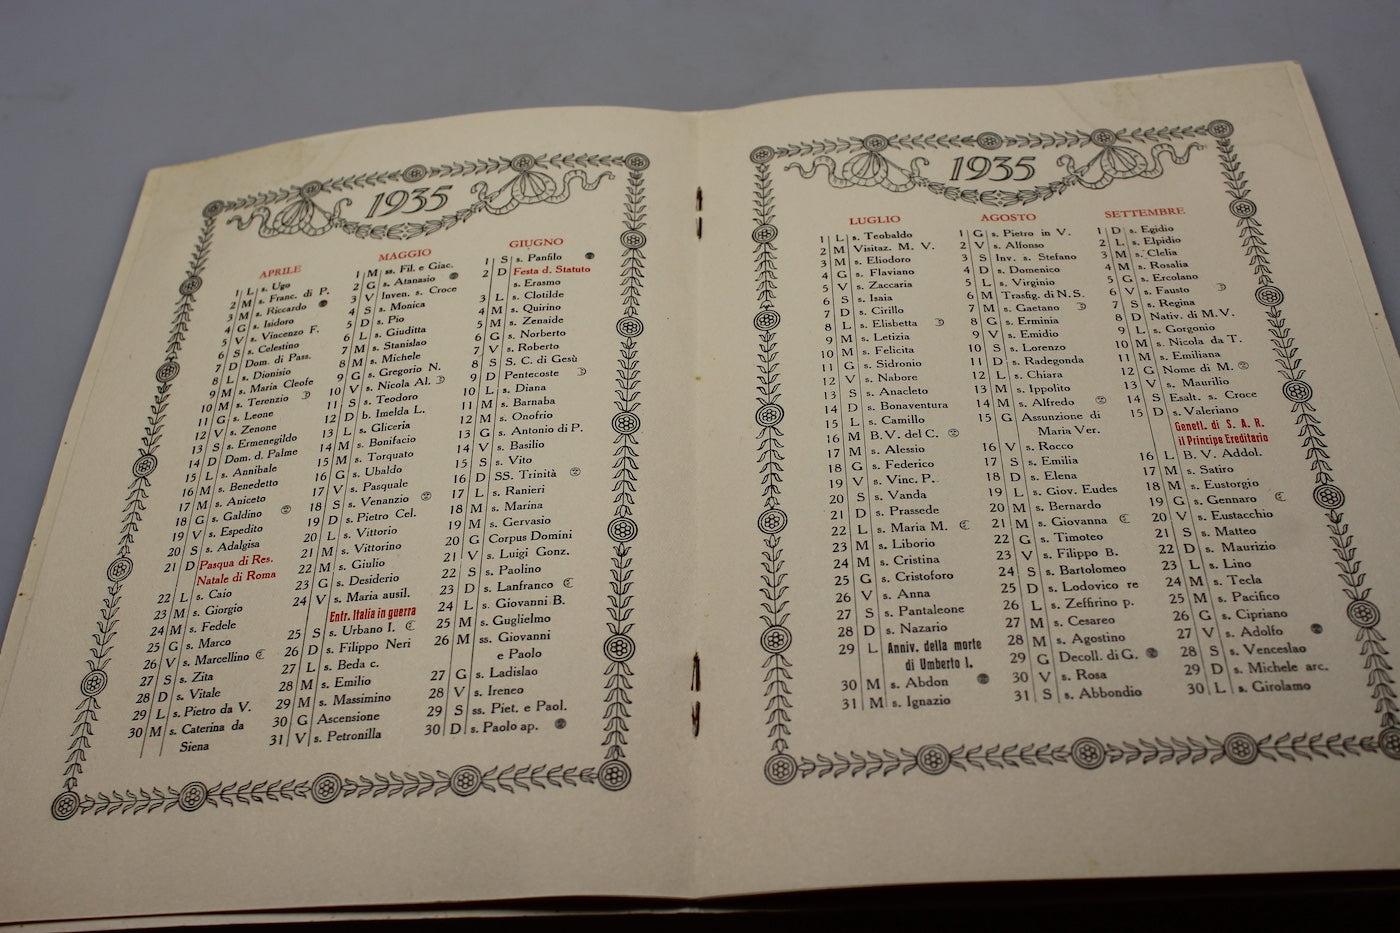 1935
APRILE
1 L s. Ugo
2 M s. Franc. di P.
3 M s. Riccardo
4 G s. Isidoro
5 V s. Vincenzo F.
6 S s. Celestino
7 D Dom. di Pass.
8 L s. Dionisio
9 M s. Maria Cleofe
10 M s. Terenzio
11 G s. Leone
12 V s. Zenone
13 S s. Ermenegildo
14 D Dom. d. Palme
15 L s. Annibale
16 M s. Benedetto
17 M s. Aniceto
18 G s. Galdino
19 V s. Espedito
20 S s. Adalgisa
21 D Pasqua di Res.
Natale di Roma
22 L s. Caio
23 M s. Giorgio
24 M s. Fedele
25 G s. Marco
26 V s. Marcellino
27 S s. Zita
28 D s. Vitale
29 L s. Pietro da V.
30 M s. Caterina da
Siena
MAGGIO
1 M ss. Fil. e Giac.
2 G s. Atanasio
3 V Inven. s. Croce
4 S s. Monica
5 D s. Pio
6 L s. Giuditta
7 M s. Stanislao
8 M s. Michele
9 G s. Gregorio N.
10 V s. Nicola Al.
11 S s. Teodoro
12 D b. Imelda L.
13 L s. Gliceria
14 M s. Bonifacio
15 M s. Torquato
16 G s. Ubaldo
17 V s. Pasquale
18 S s. Venanzio
19 D s. Pietro Cel.
20 L s. Vittorio
21 M s. Vittorino
22 M s. Giulio
23 G s. Desiderio
24 V s. Maria ausil.
Entr. Italia in guerra
25 S s. Urbano I.
26 D s. Filippo Neri
27 L s. Beda c.
28 M s. Emilio
29 M s. Massimino
30 G Ascensione
31 V s. Petronilla
GIUGNO
1 S s. Panfilo
2 D Festa d. Statuto
s. Erasmo
3 L s. Clotilde
4 M s. Quirino
5 M s. Zenaide
6 G s. Norberto
7 V s. Roberto
8 S S. C. di Gesù
9 D Pentecoste
10 L s. Diana
11 M s. Barnaba
12 M s. Onofrio
13 G s. Antonio di P.
14 V s. Basilio
15 S s. Vito
16 D SS. Trinità
17 L s. Ranieri
18 M s. Marina
19 M s. Gervasio
20 G Corpus Domini
21 V s. Luigi Gonz.
22 S s. Paolino
23 D s. Lanfranco
24 L s. Giovanni B.
25 M s. Guglielmo
26 M ss. Giovanni
e Paolo
27 G s. Ladislao
28 V s. Ireneo
29 S ss. Piet. e Paol.
30 D s. Paolo ap.
1935
LUGLIO
1 L s. Teobaldo
2 M Visitaz. M. V.
3 M s. Eliodoro
4 G s. Flaviano
5 V s. Zaccaria
6 S s. Isaia
7 D s. Cirillo
8 L s. Elisbetta
9 M s. Letizia
10 M s. Felicita
11 G s. Sidronio
12 V s. Nabore
13 S s. Anacleto
14 D s. Bonaventura
15 L s. Camillo
16 M B. V. del C.
17 M s. Alessio
18 G s. Federico
19 V s. Vinc. P.
20 S s. Vanda
21 D s. Prassede
22 L s. Maria M.
23 M s. Liborio
24 M s. Cristina
25 G s. Cristoforo
26 V s. Anna
27 S s. Pantaleone
28 D s. Nazario
29 L Anniv. della morte
di Umberto I.
30 M s. Abdon
31 M s. Ignazio
AGOSTO
1 G s. Pietro in V.
2 V s. Alfonso
3 S Inv. s. Stefano
4 D s. Domenico
5 L s. Virginio
6 M Trasfig. di N.S.
7 M s. Gaetano
8 G s. Erminia
9 V s. Emidio
10 S s. Lorenzo
11 D s. Radegonda
12 L s. Chiara
13 M s. Ippolito
14 M s. Alfredo
15 G Assunzione di
Maria Ver.
16 V s. Rocco
17 S s. Emilia
18 D s. Elena
19 L s. Giov. Eudes
20 M s. Bernardo
21 M s. Giovanna
22 G s. Timoteo
23 V s. Filippo B.
24 S s. Bartolomeo
25 D s. Lodovico re
26 L s. Zeffirino p.
27 M s. Cesareo
28 M s. Agostino
29 G Decoll. di G.
30 V s. Rosa
31 S s. Abbondio
SETTEMBRE
1 D s. Egidio
2 L s. Elpidio
3 M s. Clelia
4 M s. Rosalia
5 G s. Ercolano
6 V s. Fausto
7 S s. Regina
8 D Nativ. di M.V.
9 L s. Gorgonio
10 M s. Nicola da T.
11 M s. Emiliana
12 G Nome di M.
13 V s. Maurilio
14 S Esalt. s. Croce
15 D s. Valeriano
Genetl. di S. A. R.
il Principe Ereditario
16 L B. V. Addol.
17 M s. Satiro
18 M s. Eustorgio
19 G s. Gennaro
20 V s. Eustacchio
21 S s. Matteo
22 D s. Maurizio
23 L s. Lino
24 M s. Tecla
25 M s. Pacifico
26 G s. Cipriano
27 V s. Adolfo
28 S s. Venceslao
29 D s. Michele arc.
30 L s. Girolamo